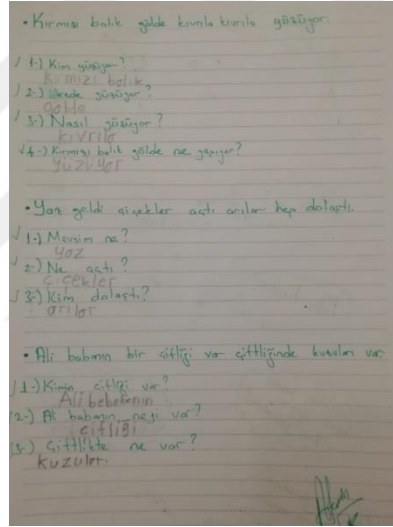 • Kırmızı balık gölde kıvrıla kıvrıla yüzüyor.
1-) Kim yüzüyor?
Kırmızı balık
2-) Nerede yüzüyor?
gölde
3-) Nasıl yüzüyor?
kıvrıla
4-) Kırmızı balık gölde ne yapıyor?
yüzüyor
• Yaz geldi çiçekler açtı arılar hep dolaştı.
1-) Mevsim ne?
yaz
2-) Ne açtı?
çiçekler
3-) Kim dolaştı?
arılar
• Ali babanın bir çiftliği var çiftliğinde kuzuları var
1-) Kimin çiftliği var?
Ali
2-) Ali babanın neyi var?
çiftliği
3-) Çiftlikte ne var?
kuzular.